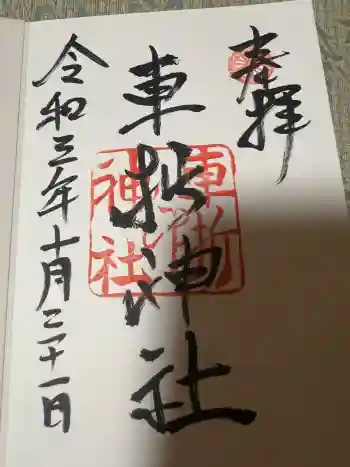 奉拝
車折神社
車折神社
令和三年十月二十一日